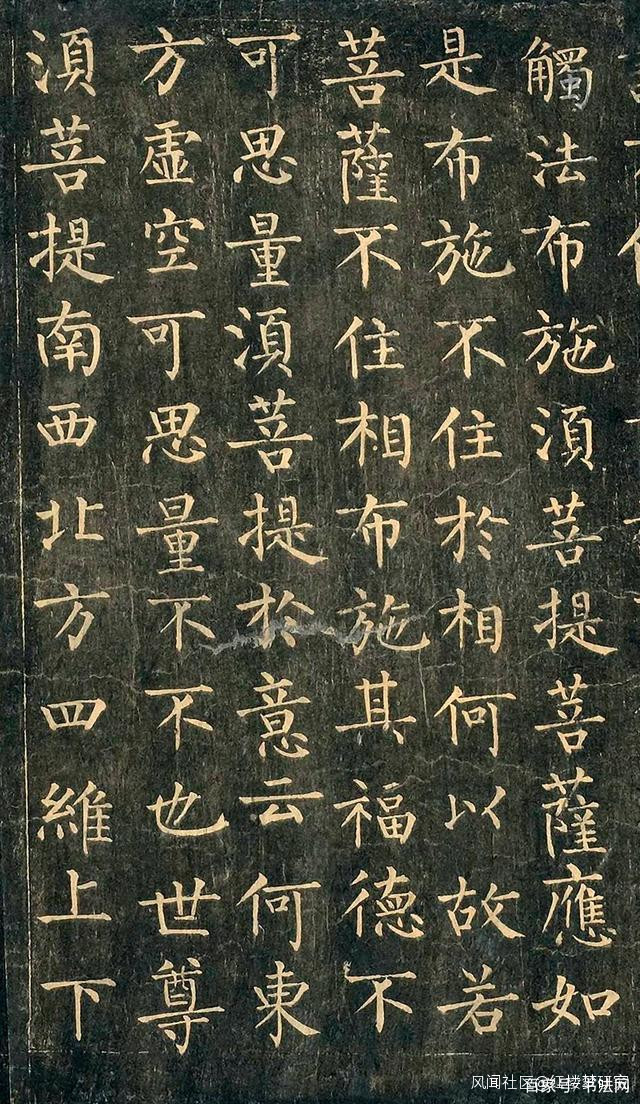 觸法布施湏菩提菩薩應如
是布施不住於相何以故若
菩薩不住相布施其福德不
可思量湏菩提於意云何東
方虚空可思量不不也世尊
湏菩提南西北方四維上下
风闻社区
百家号 书法网